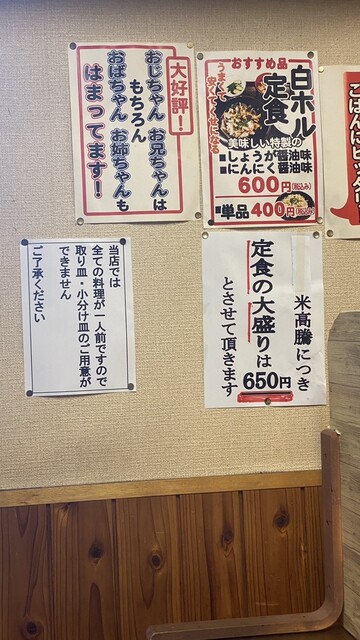 大好評！
おじちゃん お兄ちゃんは
もちろん
おばちゃん お姉ちゃんも
はまってます！
おすすめ品
白ホル
定食
うまくて
安くてくせになる
美味しい特製の
■しょうが醤油味
■にんにく醤油味
600円(税込み)
■単品400円(税込み)
ごはんにピッタリ
当店では
全ての料理が一人前ですので
取り皿・小分け皿のご用意が
できません
ご了承ください
米高騰につき
定食の大盛りは
650円
とさせて頂きます